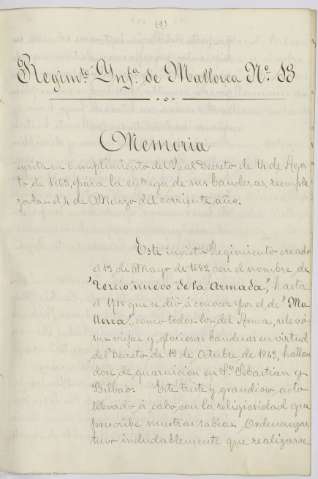 (1)
Regimto Ynfa de Mallorca No 13
Memoria
escrita en cumplimiento del Real Decreto de 14 de Agos
to de 18 , para la entrega de sus banderas, reempla
zadas el 4 de Marzo del corriente año.
Este invicto Regimiento creado
el 13 de Mayo de 1682 con el nombre de
"Tercio nuevo de la Armada," hasta
el 1718 que se dió á conocer por el de "Ma
llorca", como todos los del Arma, relevó
sus viejas y gloriosas banderas en virtud
del Decreto de 13 de Octubre de 1843, hallan
dose de guarnicion en Sn Sebastian y
Bilbao. Este triste y grandioso acto
llevado á cabo con la religiosidad que
prescribe nuestras sabias Ordenanzas
tuvo indudablemente que realizarse